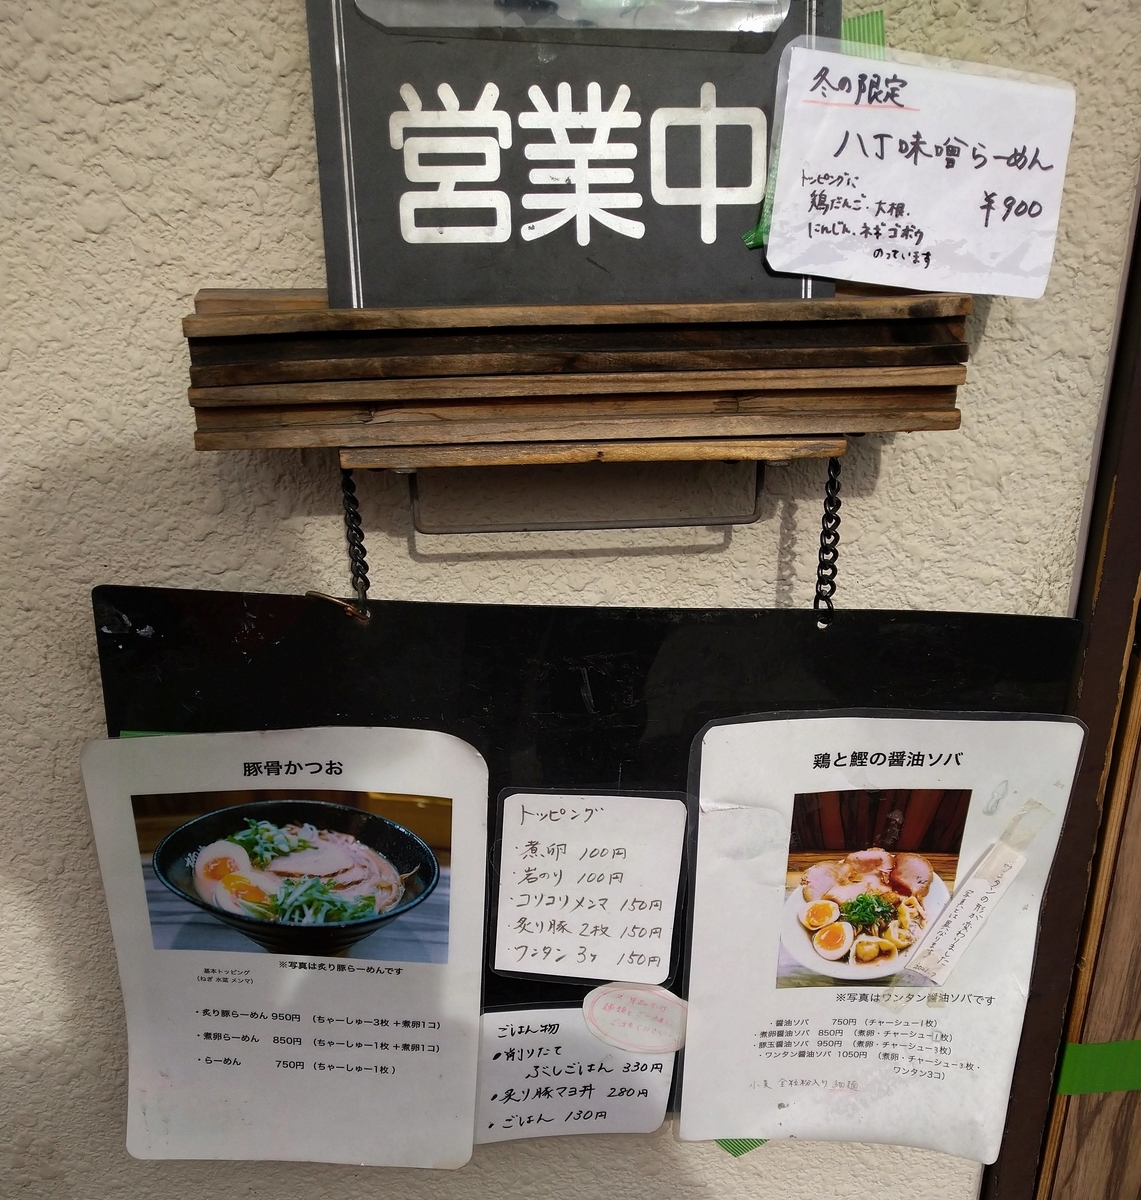 営業中
冬の限定
八丁味噌らーめん
トッピングに
鶏だんご、大根、
にんじん、ネギ ゴボウ
のっています
¥900
豚骨かつお
※写真は炙り豚らーめんです
基本トッピング
(ねぎ 水菜 メンマ)
・炙り豚らーめん 950円 (ちゃーしゅー3枚 +煮卵1コ)
・煮卵らーめん 850円 (ちゃーしゅー1枚 +煮卵1コ)
・らーめん 750円 (ちゃーしゅー1枚 )
トッピング
・煮卵 100円
・岩のり 100円
・コリコリメンマ 150円
・炙り豚 2枚 150円
・ワンタン 3ヶ 150円
ごはん物
・削りたて
ぶしごはん 330円
・炙り豚マヨ丼 280円
・ごはん 130円
鶏と鰹の醤油ソバ
ワンタンの形が変わりました。
写真とは異なります。
※写真はワンタン醤油ソバです
・醤油ソバ 750円 (チャーシュー1枚)
・煮卵醤油ソバ 850円 (煮卵・チャーシュー1枚)
・豚玉醤油ソバ 950円 (煮卵・チャーシュー3枚)
・ワンタン醤油ソバ 1050円 (煮卵・チャーシュー3枚・
ワンタン3コ)
小麦 全粒粉入り 細麺